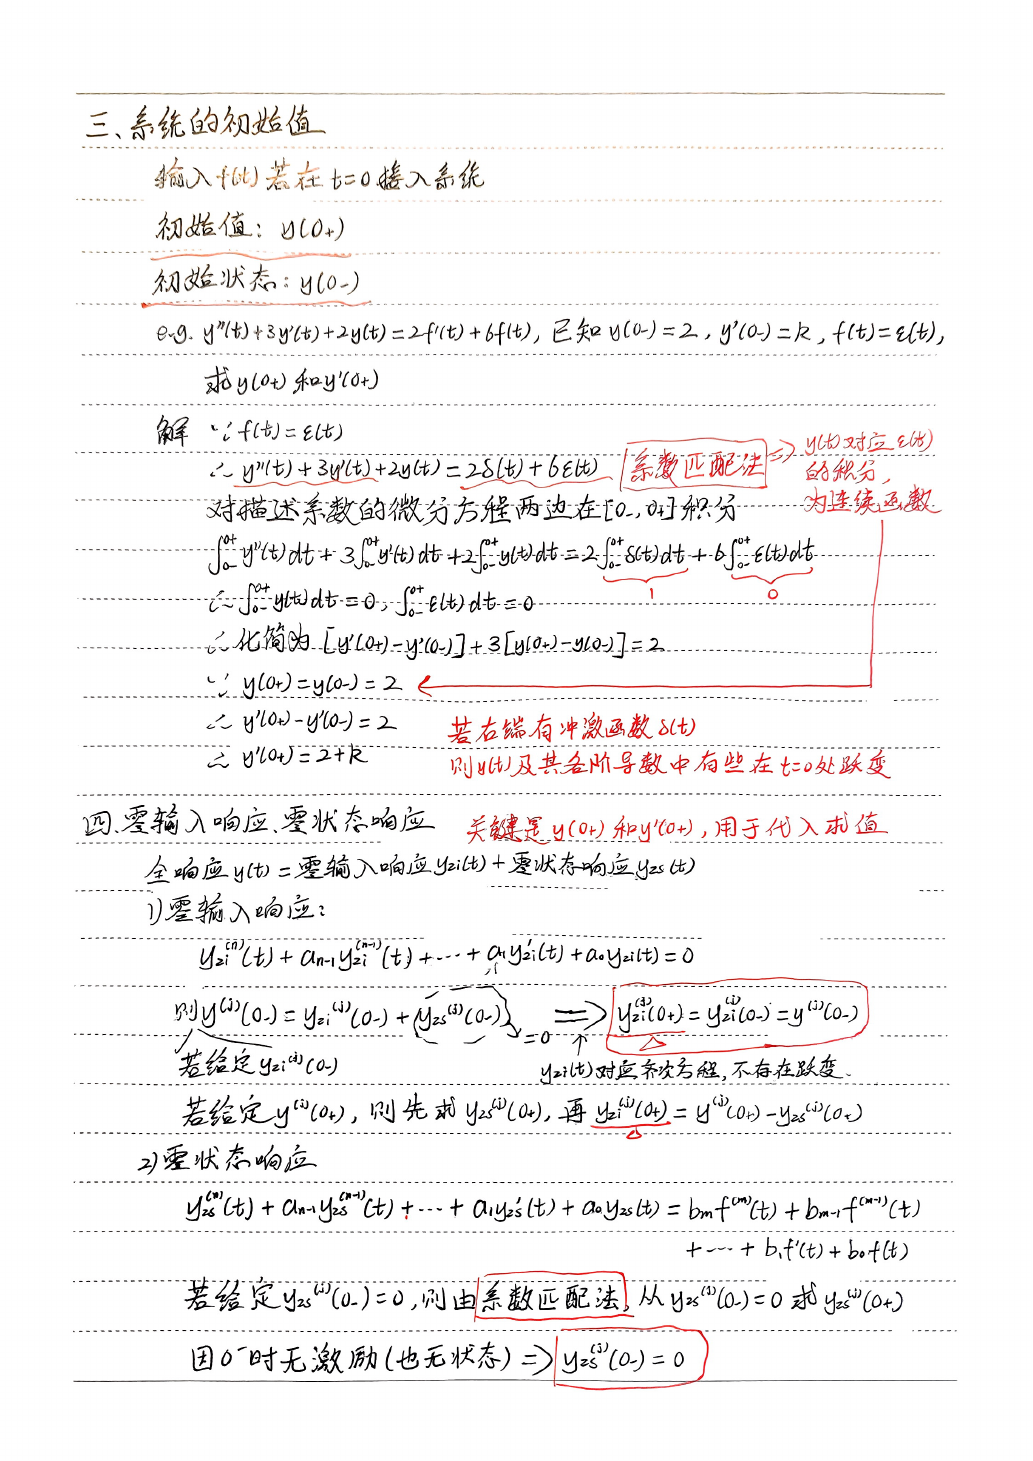 三、系统的初始值
输入f(t)若在t=0接入系统
初始值：y(0+)
初始状态：y(0-)
e.g. y''(t)+3y'(t)+2y(t)=2f'(t)+6f(t), 已知y(0-)=2, y'(0-)=k, f(t)=ε(t),
求y(0+)和y'(0+)
解 ∵ f(t)=ε(t)
∴ y''(t)+3y'(t)+2y(t)=2δ(t)+6ε(t) 系数匹配法 => y(t)对应ε(t)
的积分，
为连续函数
对描述系数的微分方程两边在[0-,0+]积分
∫0-0+ y''(t)dt+3∫0-0+ y'(t)dt+2∫0-0+ y(t)dt=2∫0-0+ δ(t)dt+6∫0-0+ ε(t)dt
1 0
∴ ∫0-0+ y(t)dt=0, ∫0-0+ ε(t)dt=0
∴ 化简为 [y'(0+)-y'(0-)]+3[y(0+)-y(0-)]=2
∵ y(0+)=y(0-)=2
∴ y'(0+)-y'(0-)=2 若右端有冲激函数δ(t)
∴ y'(0+)=2+k 则y(t)及其各阶导数中有些在t=0处跃变
四、零输入响应、零状态响应 关键是y(0+)和y'(0+), 用于代入求值
全响应y(t)=零输入响应yzi(t)+零状态响应yzs(t)
1)零输入响应：
yzi^(n)(t)+an-1yzi^(n-1)(t)+⋯+a1y'zi(t)+a0yzi(t)=0
则y^(j)(0-)=yzi^(j)(0-)+yzs^(j)(0-) => yzi^(j)(0+)=yzi^(j)(0-)=y^(j)(0-)
=0
若给定yzi^(j)(0-) yzi(t)对应齐次方程，不存在跃变.
若给定y^(j)(0+), 则先求yzs^(j)(0+), 再yzi^(j)(0+)=y^(j)(0+)-yzs^(j)(0+)
2)零状态响应
yzs^(n)(t)+an-1yzs^(n-1)(t)+⋯+a1yzs'(t)+a0yzs(t)=bmf^(m)(t)+bm-1f^(m-1)(t)
+⋯+b1f'(t)+b0f(t)
若给定yzs^(j)(0-)=0, 则由系数匹配法, 从yzs^(j)(0-)=0求yzs^(j)(0+)
因0⁻时无激励(也无状态) => yzs^(j)(0-)=0